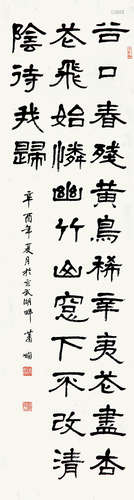 谷口春殘黃鳥稀辛夷花盡杏
花飛始憐幽竹山窓下不改清
陰待我歸
辛酉年夏月於玄武湖畔 蕭嫻